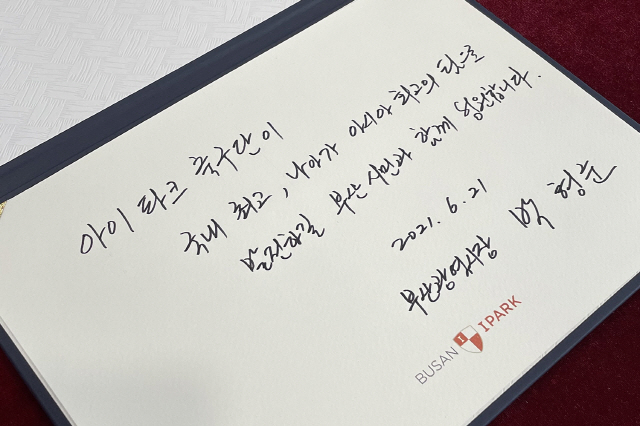 아이파크 축구단이
국내 최고, 나아가 아시아 최고의 팀으로
발전하길 부산시민과 함께 응원합니다.
2021. 6. 21
부산광역시장 박형준
BUSAN IPARK